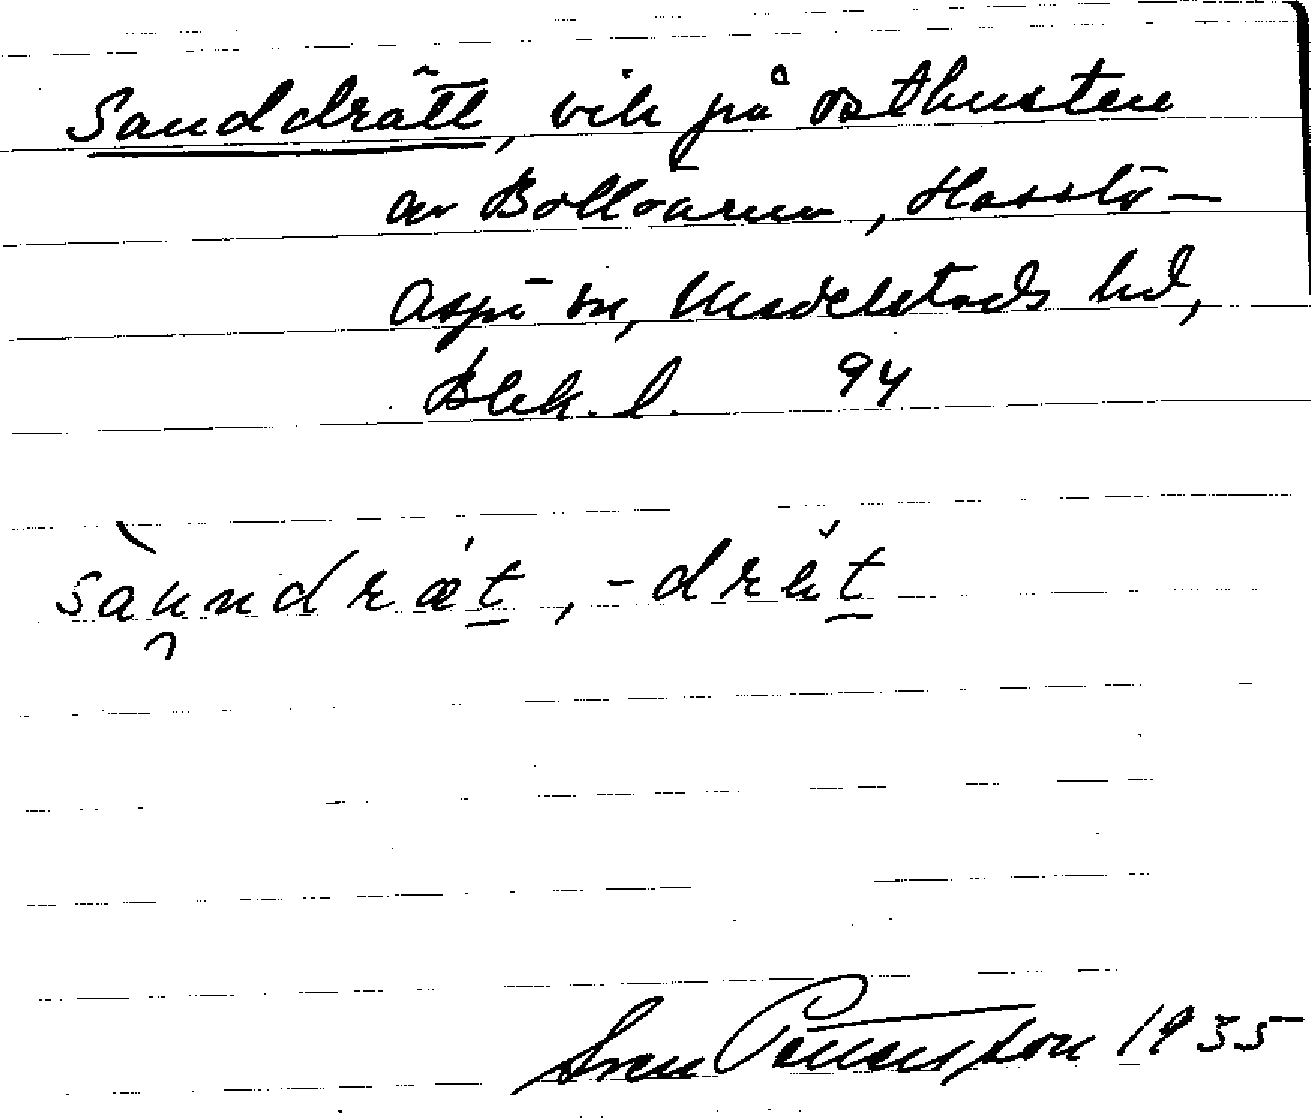 Sanddrätt, vik på ostkusten
av Bollöarna, Hasslö-
Aspö sn, Medelstads hd,
Blek. l. 94
sàundræt, -dræt
Sven Benson 1935